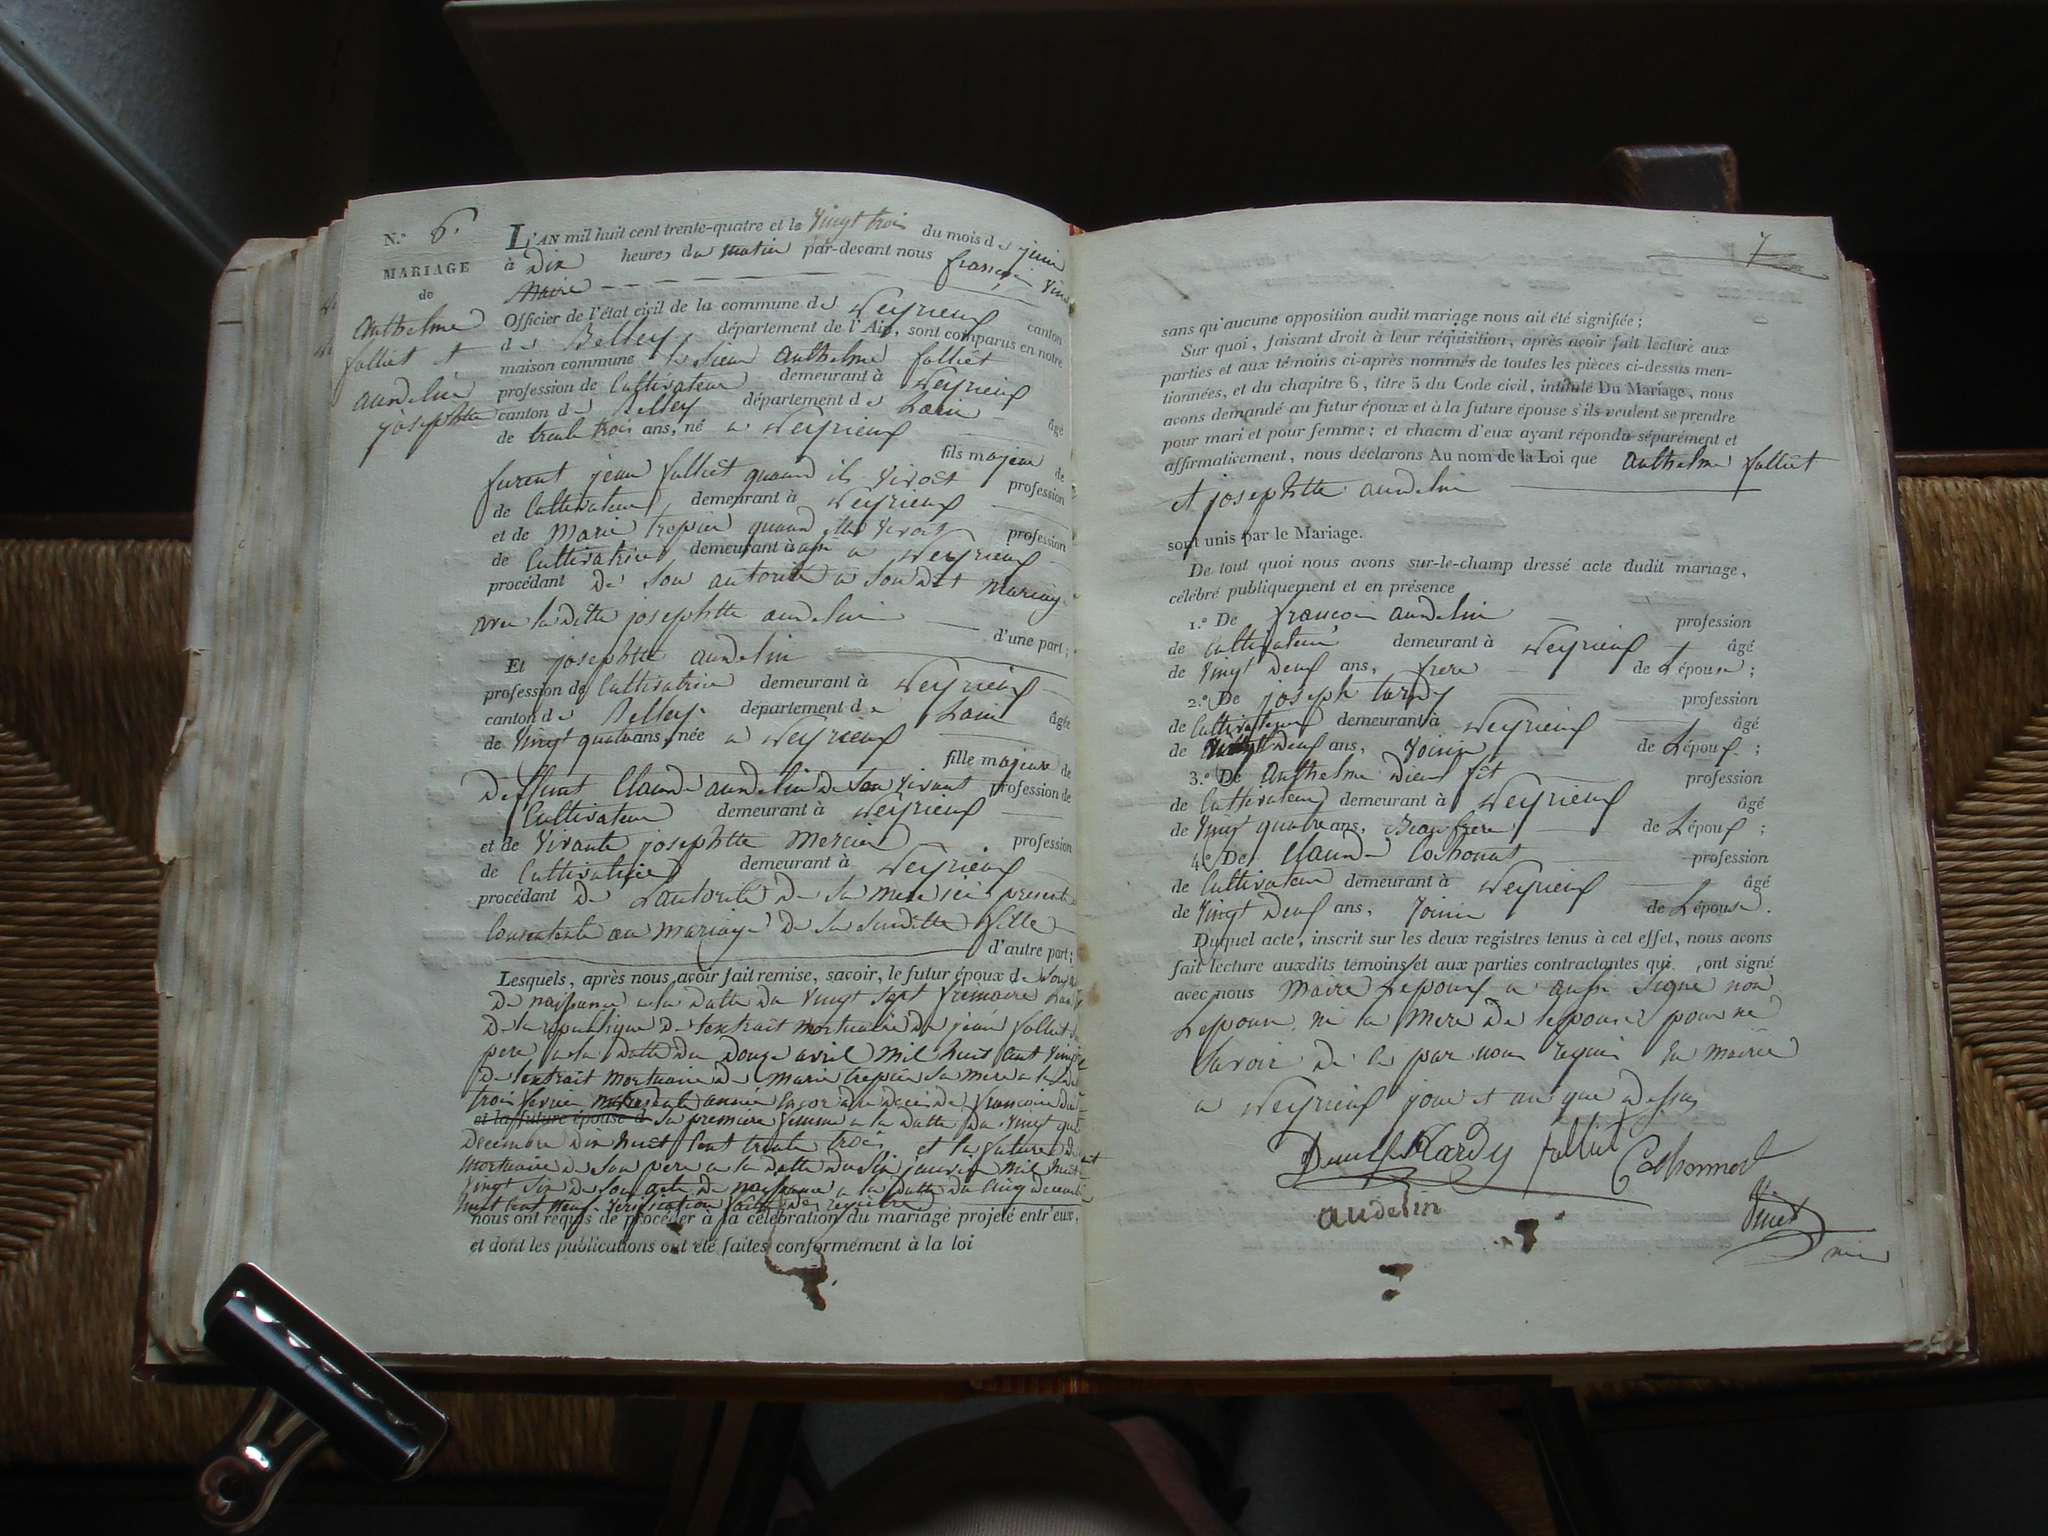 N.o 6.
MARIAGE
de
anthelme
folliet et
audelin
josephtte
L'AN mil huit cent trente-quatre et le vingt trois du mois de juin
à dix heures du matin par-devant nous françois
Maire
Officier de l'état civil de la commune de Veyrieuf canton
de Belley, département de l'Ain, sont comparus en notre
maison commune le sieur anthelme folliet
profession de Cultivateur demeurant à Veyrieuf
canton de Belley département de Lain âgé
de trente trois ans, né a Veyrieuf
fils majeur de
furent jean folliet quand ils vivoit profession
de Cultivateur demeurant à Veyrieuf
et de Marie trepier quand elle vivoit profession
de Cultivatrice demeurant à a Veyrieuf
procédant de son autorité a son dit mariage
avec la ditte josephtte audelin d'une part;
Et josephtte audelin
profession de Cultivatrice demeurant à Veyrieuf
canton de Belley département de Lain âgée
de vingt quatre ans, née a Veyrieuf
fille majeure de
deffunt Claude audelin de son vivant profession de
Cultivateur demeurant à Veyrieuf
et de vivante josephtte Mercier profession
de Cultivatrice demeurant à Veyrieuf
procédant de Lautorité de sa mere ici presente
Consentente au mariage de sa suditte fille
d'autre part;
Lesquels, après nous avoir fait remise, savoir, le futur époux de
de naissance a la datte du vingt sept frimaire
de la republique de lextrait mortuaire de jean folliet
pere a la datte du douze avril mil huit cent vingt
de lextrait mortuaire de Marie trepier sa mere a la
trois fevrier année de françoise
et la future épouse d sa premiere femme a la datte du vingt
decembre dix huit cent trente trois et la future
mortuaire de son pere a la datte du six janvier mil huit
vingt six de son acte de naissance a la datte du cinq decembre
huit cent neuf verification faite des registre
nous ont requis de procéder à la célébration du mariage projeté entr'eux,
et dont les publications ont été faites conformément à la loi
7
sans qu'aucune opposition audit mariage nous ait été signifiée;
Sur quoi, faisant droit à leur réquisition, après avoir fait lecture aux
parties et aux témoins ci-après nommés de toutes les pièces ci-dessus men-
tionnées, et du chapitre 6, titre 5 du Code civil, intitulé Du Mariage, nous
avons demandé au futur époux et à la future épouse s'ils veulent se prendre
pour mari et pour femme; et chacun d'eux ayant répondu séparément et
affirmativement, nous déclarons Au nom de la Loi que anthelme folliet
et josephtte audelin
sont unis par le Mariage.
De tout quoi nous avons sur-le-champ dressé acte dudit mariage,
célébré publiquement et en présence
1.o De françois audelin profession
de Cultivateur demeurant à Veyrieuf âgé
de vingt deuf ans, frere de Lépouse;
2.o De joseph tardy profession
de Cultivateur demeurant à Veyrieuf âgé
de deuf ans, voisin de Lépouf;
3.o De anthelme dieu fit profession
de Cultivateur demeurant à Veyrieuf âgé
de vingt quatre ans, Beaufrere de Lépouf;
4.o De Claude Cochonat profession
de Cultivateur demeurant à Veyrieuf âgé
de vingt deuf ans, voisin de Lépouse.
Duquel acte, inscrit sur les deux registres tenus à cet effet, nous avons
fait lecture auxdits témoins et aux parties contractantes qui ont signé
avec nous Maire Lepouf a aussi signé non
Lepouse ni la Mere de lepouse pour ne
savoir de ce par nous requis en mairie
a Veyrieuf jour et an que dessus
tardy folliet
audelin